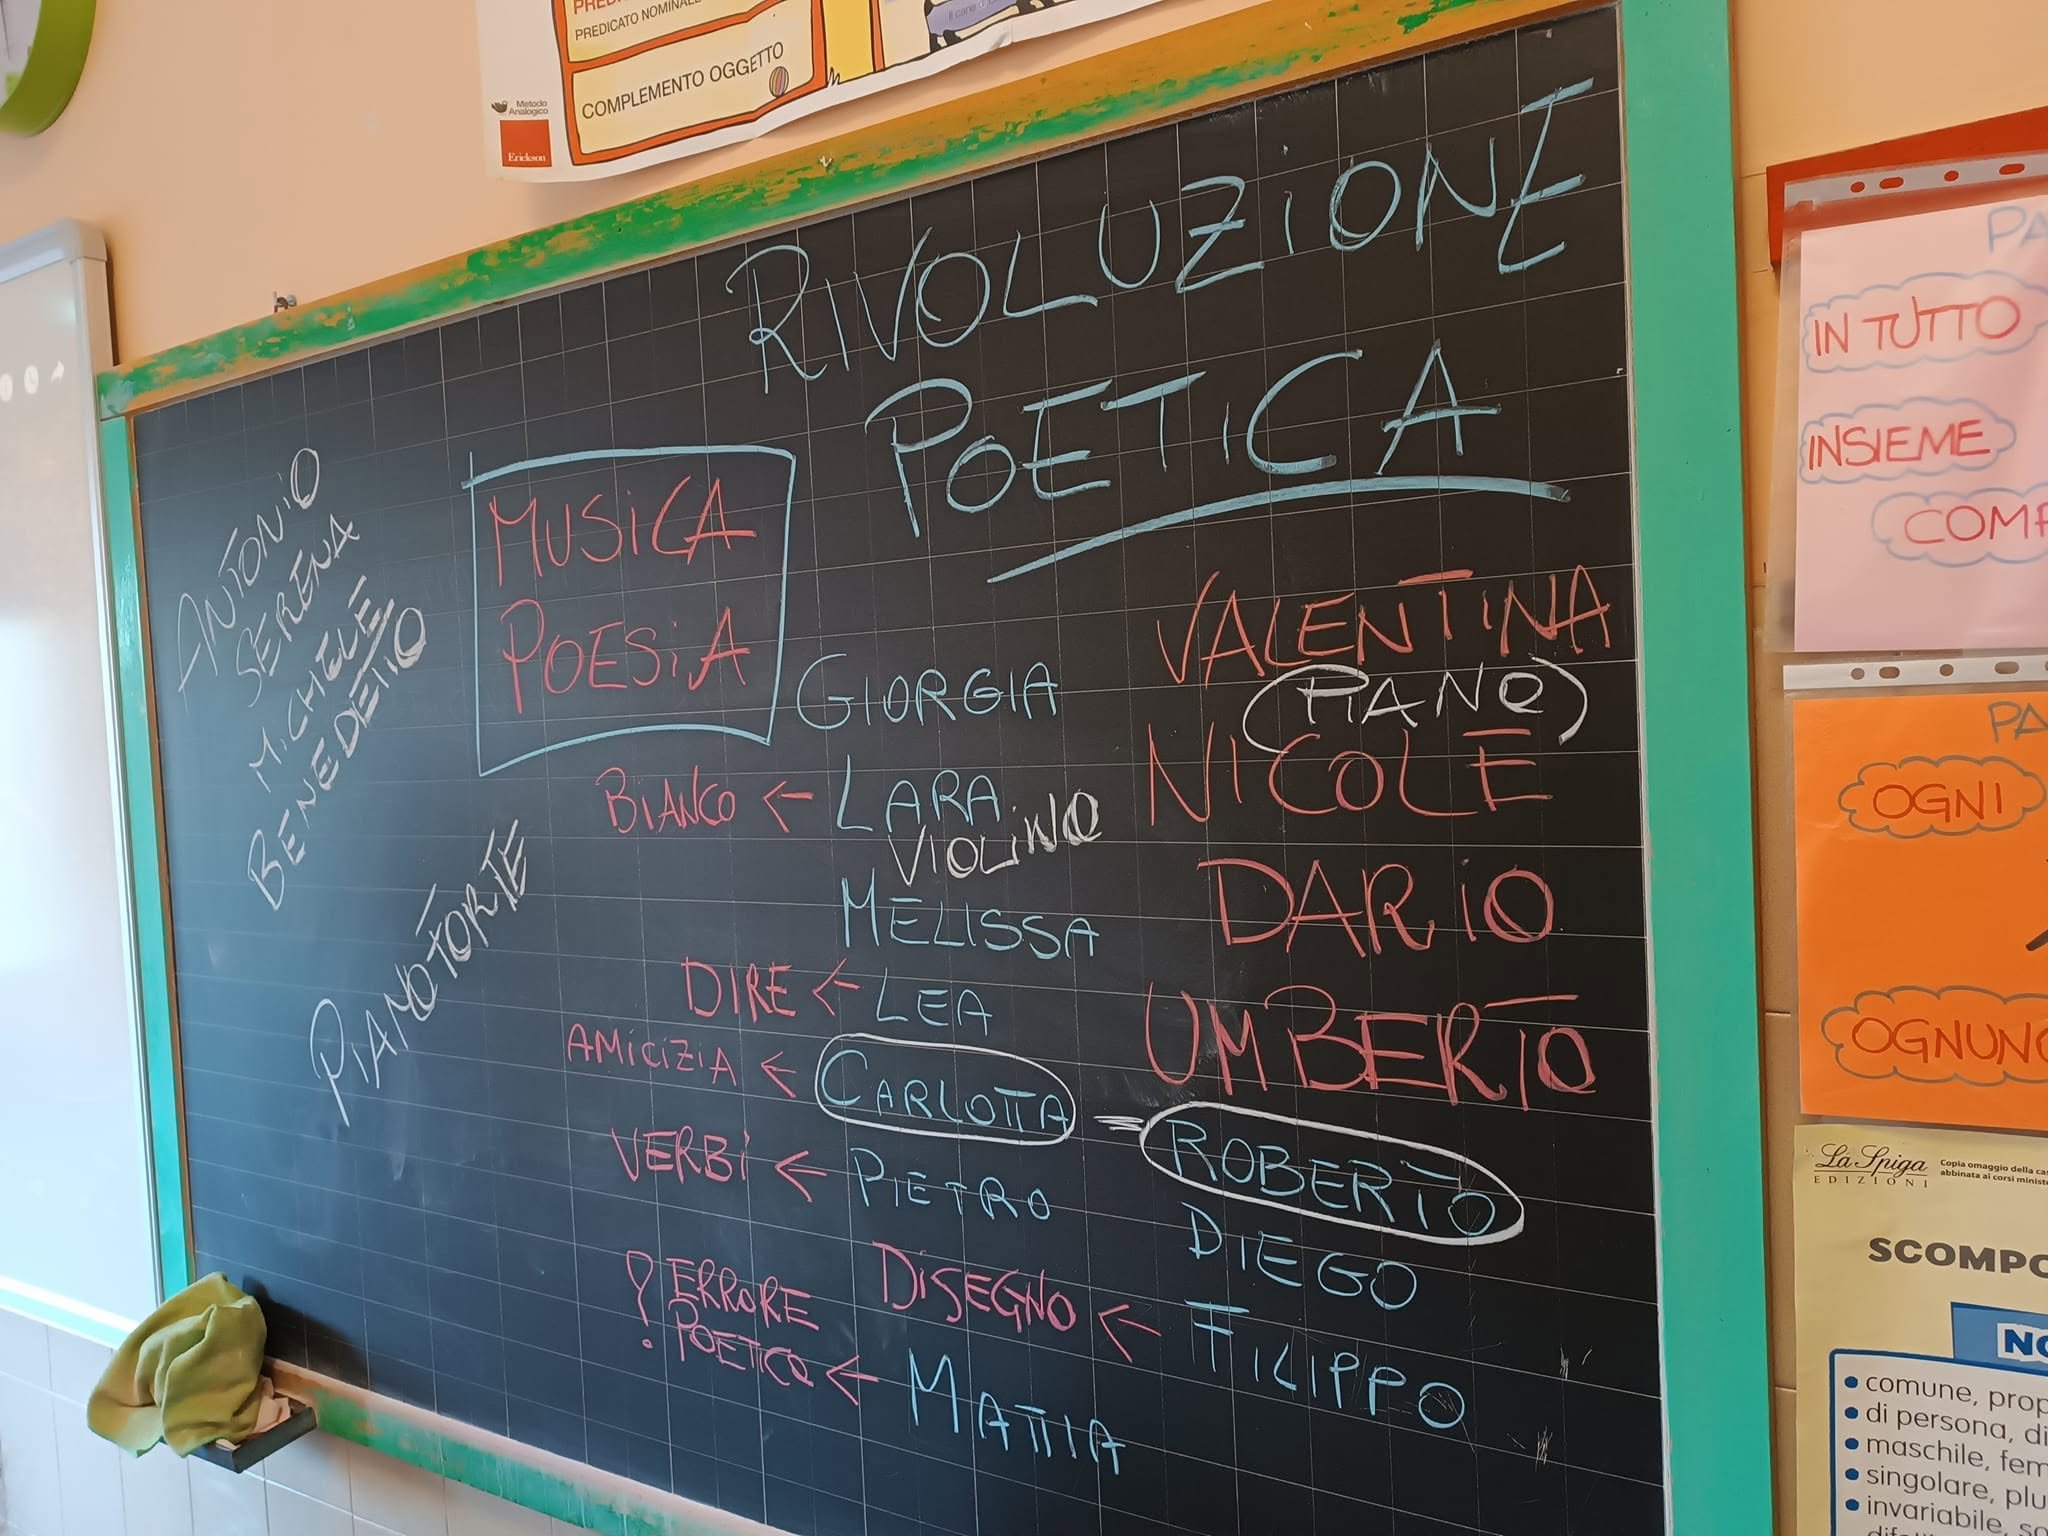 PREDICATO NOMINALE
COMPLEMENTO OGGETTO
Metodo
Analogico
Erickson
Il cane
RIVOLUZIONE
POETICA
ANTONIO
SERENA
MICHELE
BENEDETTO
PIANOFORTE
MUSICA
POESIA
GIORGIA
BIANCO ← LARA
VIOLINO
MELISSA
DIRE ← LEA
AMICIZIA ← CARLOTTA
VERBI ← PIETRO
! ERRORE
POETICO ← MATTIA
VALENTINA
(PIANO)
NICOLE
DARIO
UMBERTO
ROBERTO
DIEGO
DISEGNO ← FILIPPO
PA
IN TUTTO
INSIEME
COMP
PA
OGNI
OGNUNO
La Spiga
EDIZIONI
Copia omaggio della cas
abbinata ai corsi ministe
SCOMPO
NO
• comune, prop
• di persona, di
• maschile, fem
• singolare, plu
• invariabile, so